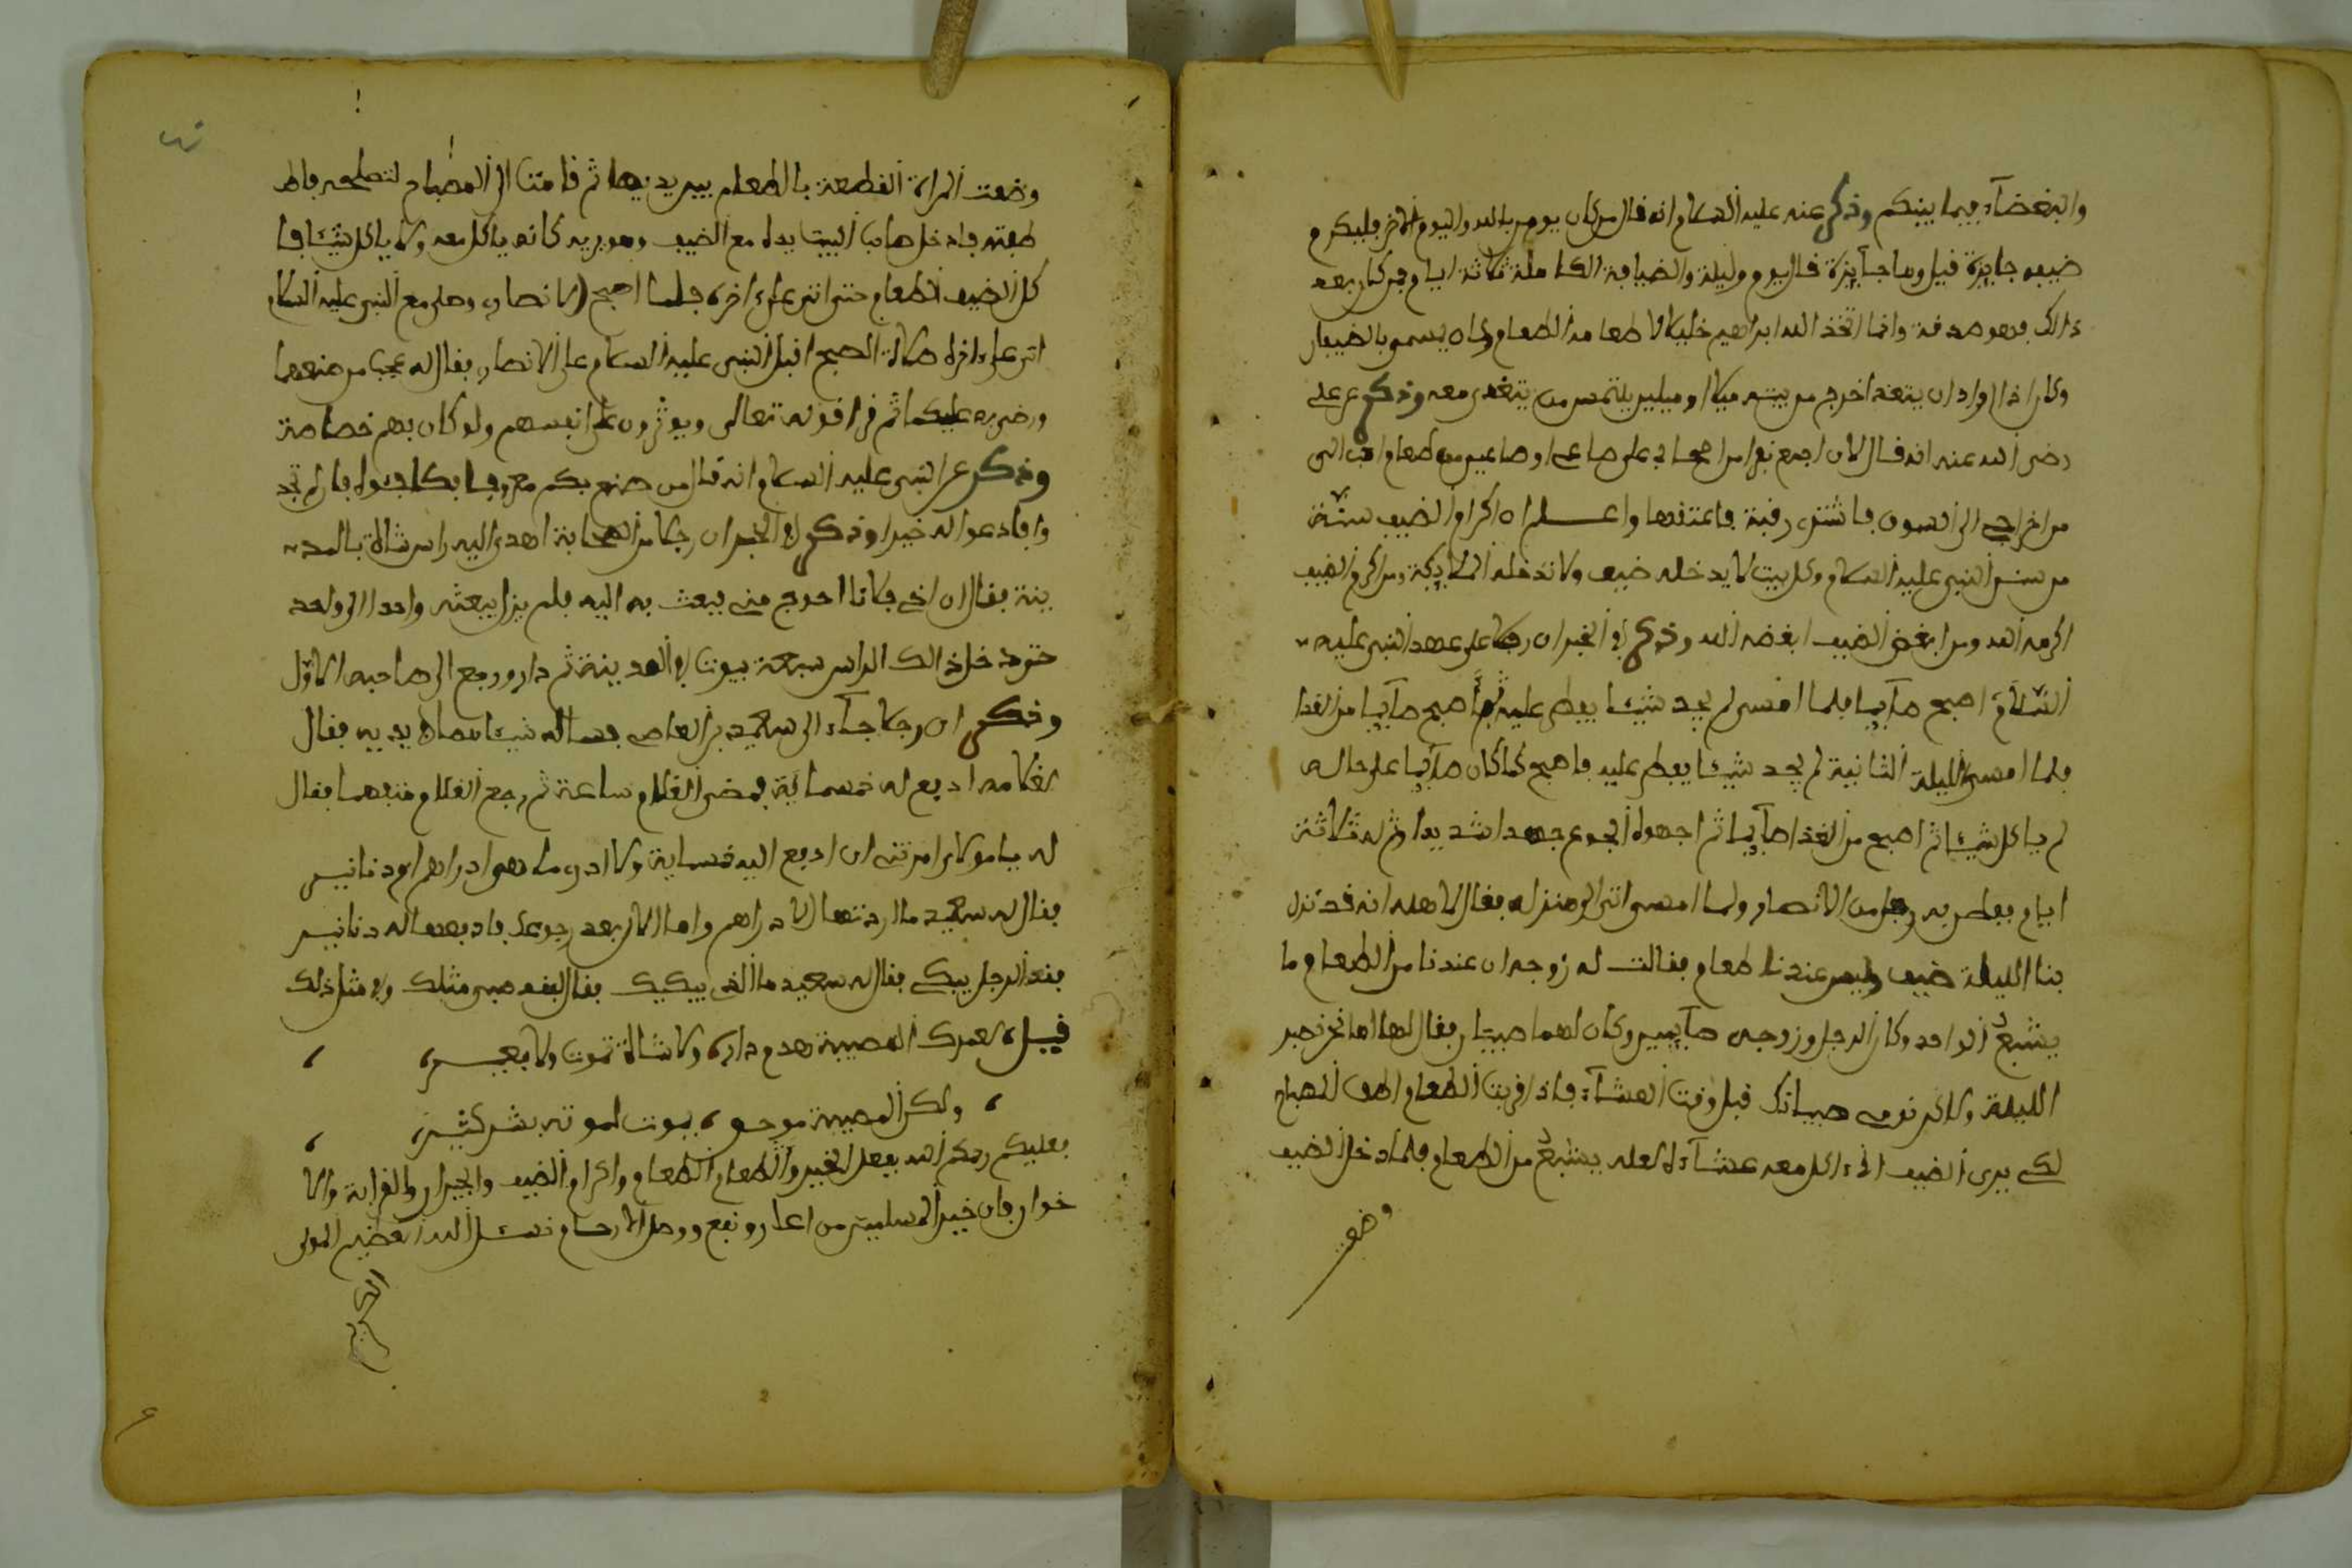 والبغضآء فيما بينكم وذكر عنه عليه السلام انه قال من كان يومن بالله واليوم الاخر فليكرم
ضيفه جايزة قيل وما جآيزة قال يوم وليلة والضيافة الكاملة ثلاثة ايام فمن كان بعد
ذالك فهو صدقة وانما اتخذ الله ابراهيم خليلا لاطعامه الطعام وكان يسمى بالضيفان
وكان اذا اراد ان يتغدا خرج من بيته ميلا او ميلين يلتمس من يتغدى معه وذكر عن علي
رضي الله عنه انه قال لان اجمع نفرا من اصحابي على صاع او صاعين من طعام احب الي
من اخراجي الى السوق فاشتري رقبة فاعتقها واعلم ان اكرام الضيف سنة
من سنن النبي عليه السلام وكل بيت لا يدخله ضيف ولا تدخله الملايكة ومن اكرم الضيف
اكرمه الله ومن ابغض الضيف ابغضه الله وذكر في الخبر ان رجلا على عهد النبي عليه
السلام اصبح صآيما فلما امسى لم يجد شيئا يفطر عليه ثم اصبح صآيما من الغدا
فلما امسى الليلة الثانية لم يجد شيئا يفطر عليه فاصبح كما كان صآيما على حاله
لم ياكل شيئا ثم اصبح من الغدا صآيما ثم اجهده الجوع جهدا شديدا ثم له ثلاثة
ايام ففطن به رجل من الانصار ولما امسى اتى الى منزله فقال لاهله انه قد نزل
بنا الليلة ضيف وليس عندنا طعام فقالت له زوجه ان عندنا من الطعام ما
يشبع الواحد وكان الرجل وزوجه صآيمين وكان لهما صبيان فقال لها اما نحن نصبر
الليلة ولاكن نومي صبيانك قبل وقت العشآء فاذا قربت الطعام اطفي المصباح
لكي يرى الضيف اني ءاكل معه عشآءه لعله يشبع من الطعام فلما دخل الضيف
وضعت
وضعت المراة القطعة بالطعام بين يديها ثم قامت الى المصباح لتصلحه فاطـ
ـفته فادخل صاحب البيت يده مع الضيف وهو يريه كانه ياكل معه ولا ياكل شيئا فا
كل الضيف الطعام حتى اتى على ءاخره فلما اصبح الانصاري وصلى مع النبي عليه السلام
اتى على ءاخره صلاة الصبح اقبل النبي عليه السلام على الانصاري فقال له عجب من صنعهما
ورضي به عليكما ثم قرا قوله تعالى ويوثرون على انفسهم ولو كان بهم خصاصة
وذكر عن النبي عليه السلام انه قال من صنع بكم معروفا فكافوه فان لم تجد
وا فادعوا له خيرا وذكر في الخبر ان رجلا من الصحابة اهدي اليه راس شاة بالمد
ينة فقال ان اخي فلانا احوج مني فبعث به اليه فلم يزل يبعثه واحدا الى واحد
حتى دخل ذالك الراس سبعة بيوت في المدينة ثم دار ورجع الى صاحبه الاول
وذكر ان رجلا جآء الى سعيد بن العاص فساله شيئا بين يديه فقال
لغلامه ادفع له خمسماية فمضى الغلام ساعة ثم رجع الغلام فقال
له يا مولاي امرتني ان ادفع اليه خمسماية ولا ادري ما هو ادراهم ام دنانير
فقال له سعيد ما اردتها الا دراهم واما الان بعد رجوعك فادفعها له دنانير
فقعد الرجل يبكي فقال له سعيد ما الذي يبكيك فقال مثلك وفي مثل ذلك
قيل لعمرك المصيبة هدم داره ولا شاة تموت ولا بعير
ولكن المصيبة موت يموت لموته بشر كثير
فعليكم رحمكم الله بفعل الخير واطعام الطعام واكرام الضيف والجيران والقرابة والا
خوان فان خير المسلمين من اعان ونفع ووصل الارحام نسئل الله العظيم المولى
الكريم